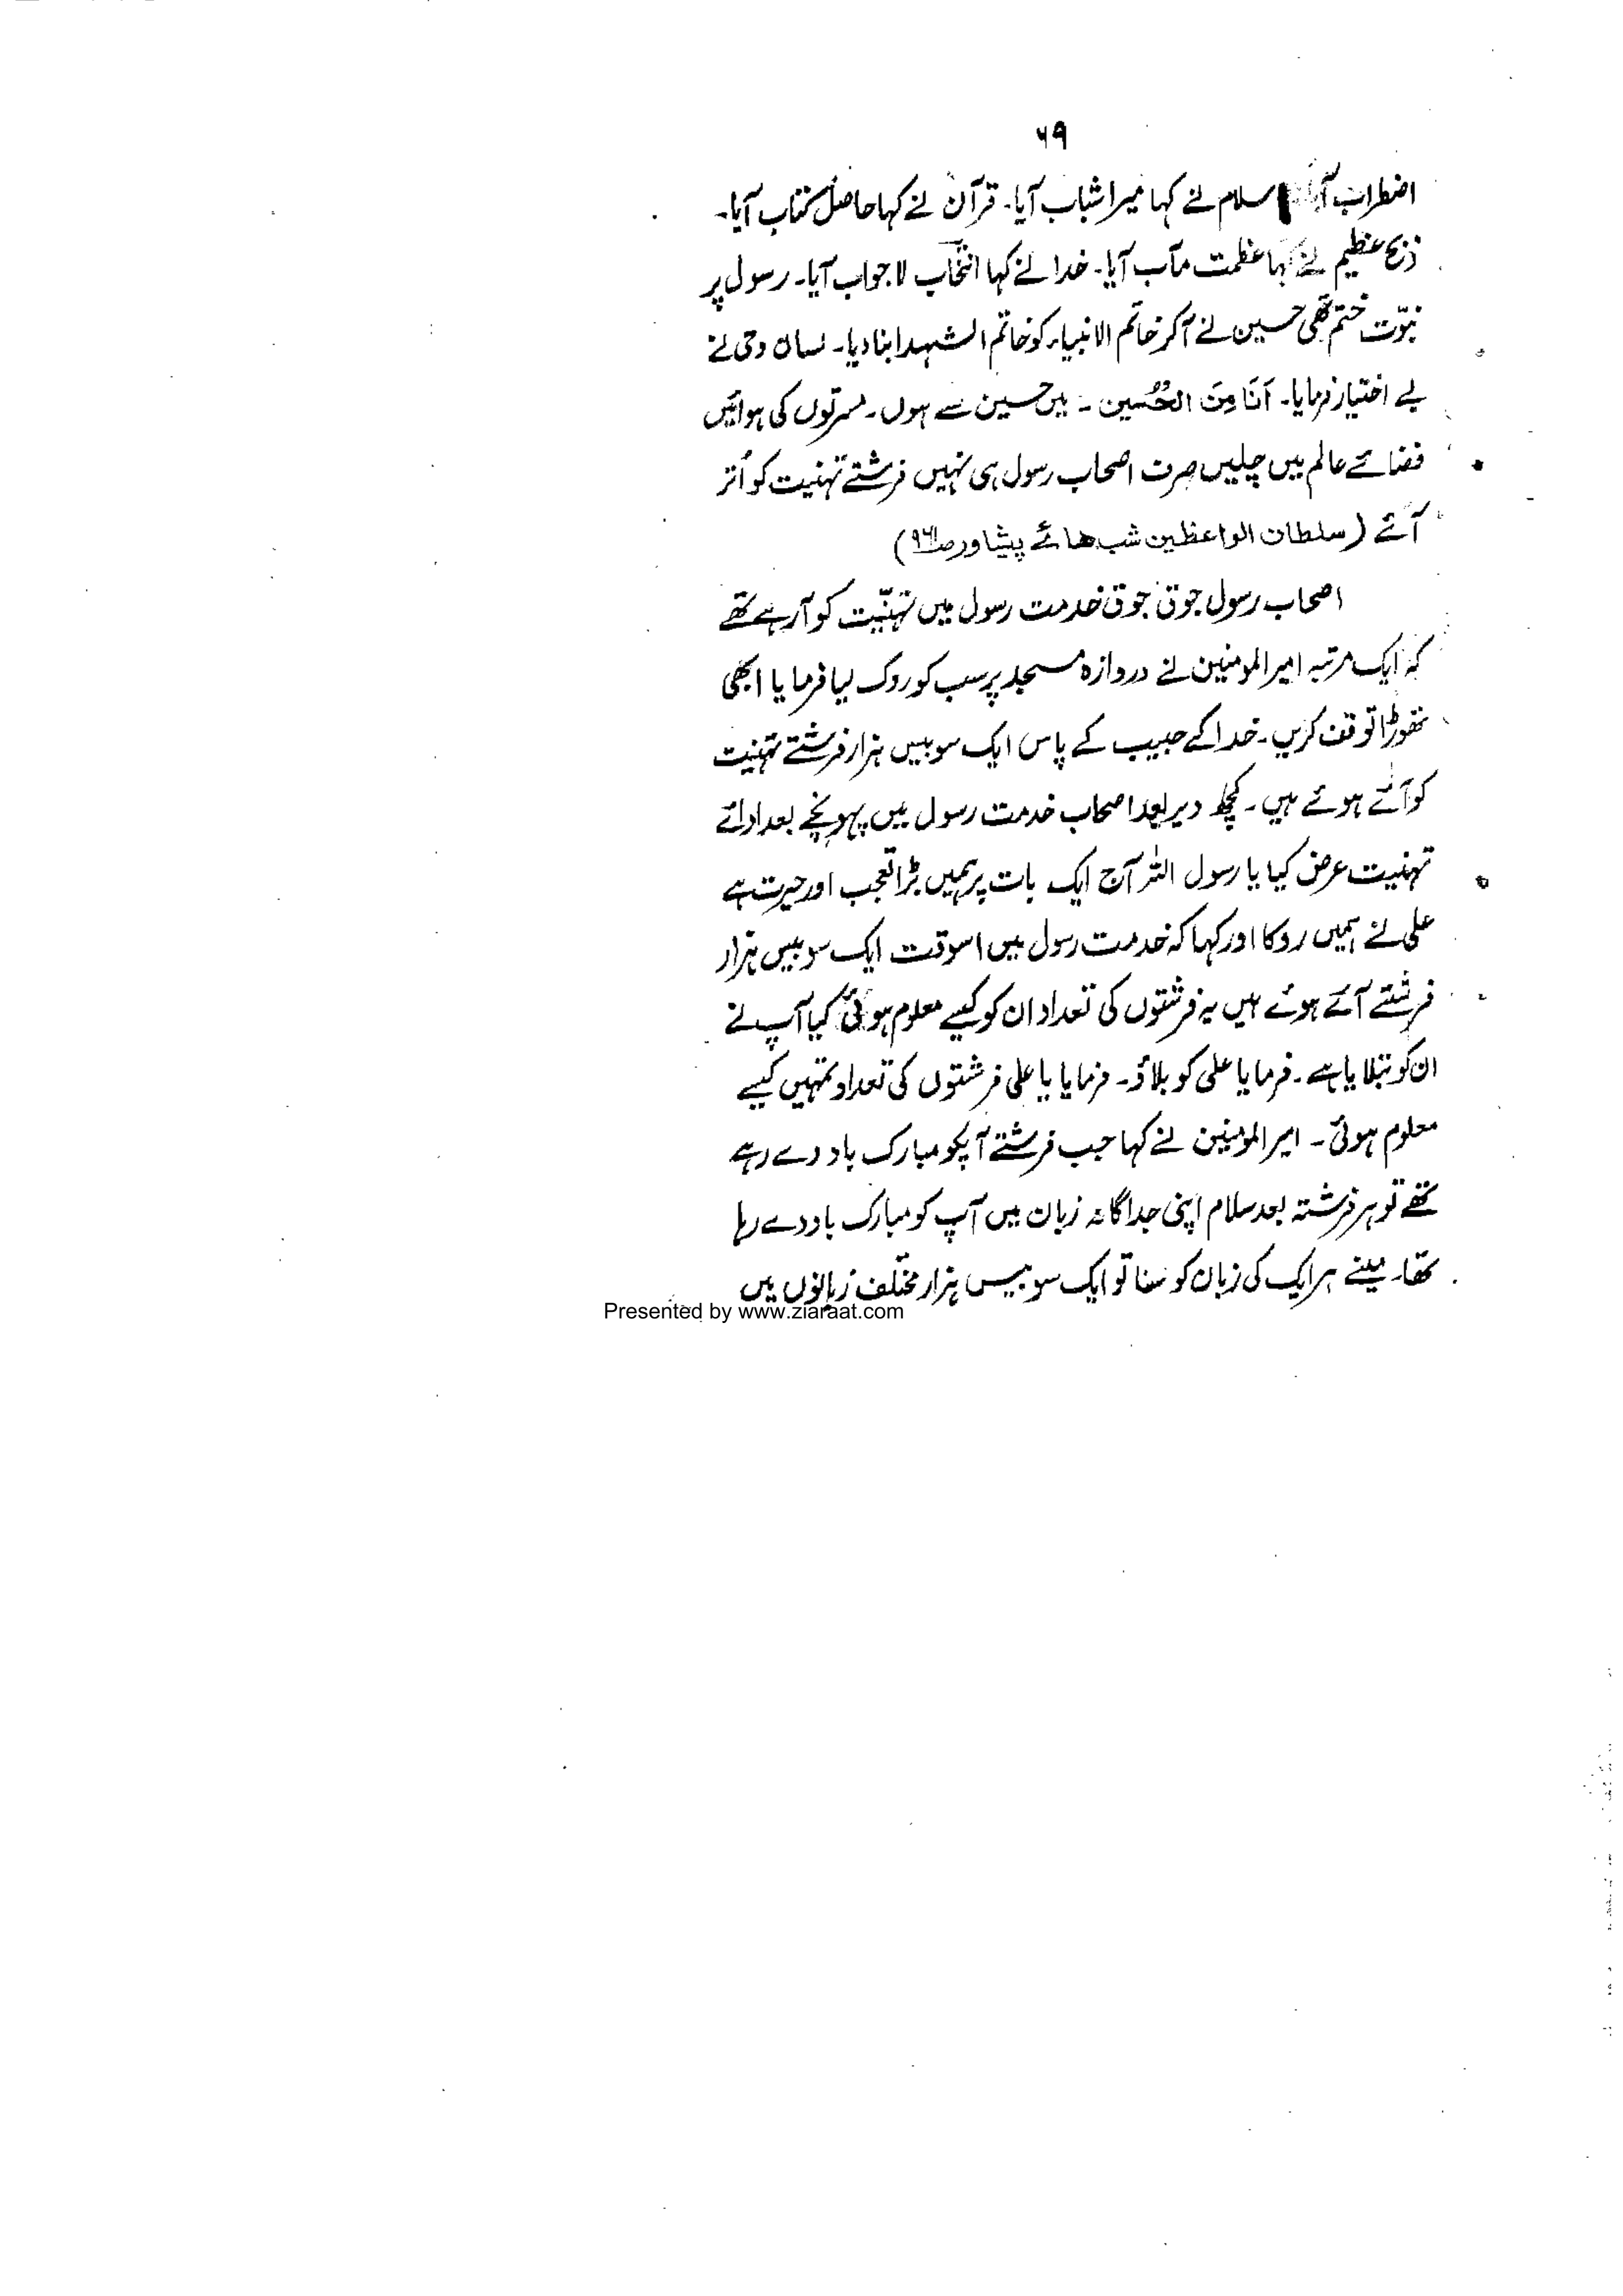 ۶۹
اضطراب آیا اسلام نے کہا میرا شباب آیا۔ قرآن نے کہا حاصل کتاب آیا۔
ذبح عظیم نے کہا عظمت مآب آیا۔ خدا نے کہا انتخاب لاجواب آیا۔ رسول پر
نبوّت ختم تھی حسین نے آکر خاتم الانبیاء کو خاتم الشہدا بنا دیا۔ لسان وحی نے
بے اختیار فرمایا۔ اَنَا مِنَ الحُسین ۔ میں حسین سے ہوں۔ مسرتوں کی ہوائیں
فضائے عالم میں چلیں صرف اصحاب رسول ہی نہیں فرشتے تہنیت کو اُتر
آئے (سلطان الواعظین شب ھائے پیشاور)
اصحاب رسول جوق جوق خدمت رسول میں تہنیّت کو آرہے تھے
کہ ایک مرتبہ امیرالمومنین نے دروازہ مسجد پر سب کو روک لیا فرمایا ابھی
تھوڑا توقف کریں۔ خدا کے حبیب کے پاس ایک سو بیس ہزار فرشتے تہنیت
کو آئے ہوئے ہیں۔ کچھ دیر بعد اصحاب خدمت رسول میں پہونچے بعد ادائے
تہنیت عرض کیا یا رسول اللہ آج ایک بات پر ہمیں بڑا تعجب اور حیرت ہے
علی نے ہمیں روکا اور کہا کہ خدمت رسول میں اسوقت ایک سو بیس ہزار
فرشتے آئے ہوئے ہیں یہ فرشتوں کی تعداد ان کو کیسے معلوم ہوئی کیا آپ نے
ان کو بتلایا ہے۔ فرمایا علی کو بلاؤ۔ فرمایا یا علی فرشتوں کی تعداد تمہیں کیسے
معلوم ہوئی۔ امیرالمومنین نے کہا جب فرشتے آپکو مبارک باد دے رہے
تھے تو ہر فرشتہ بعد سلام اپنی جداگانہ زبان میں آپ کو مبارک باد دے رہا
تھا۔ مینے ہر ایک کی زبان کو سنا تو ایک سو بیس ہزار مختلف زبانوں میں
Presented by www.ziaraat.com